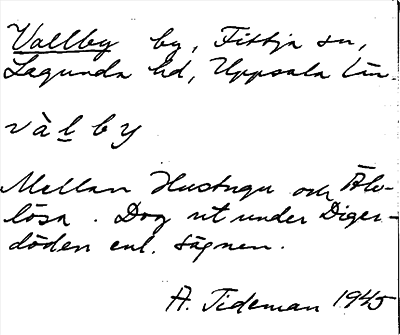 Vallby by, Fittja sn,
Lagunda hd, Uppsala län.
vàlby
Mellan Hustuga och Älv-
lösa. Dog ut under Diger-
döden enl. sägnen.
A. Tideman 1945